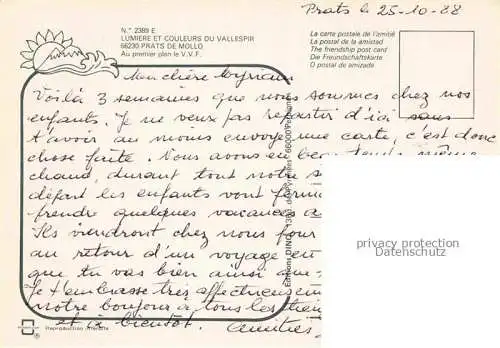 Prats le 25-10-88
N.° 2389 E
LUMIERE ET COULEURS DU VALLESPIR
66230 PRATS DE MOLLO
Au premier plan le V.V.F.
La carte postale de l'amitié
La postal de la amistad
The friendship post card
Die Freundschaftskarte
O postal de amizade
Ma chère Myriam
Voilà 3 semaines que nous sommes chez nos
enfants. Je ne veux pas repartir d'ici sans
t'avoir au moins envoyé une carte, c'est donc
chose faite. Nous avons eu beau temps, même
chaud, durant tout notre s
départ les enfants vont ferm
prendre quelques vacances a
Ils viendront chez nous pour
au retour d'un voyage en
que tu vas bien ainsi que
Je t'embrasse très affectueusement
notre bonjour à tous les tiens
et à bientôt.
privacy protection
Reproduction interdite